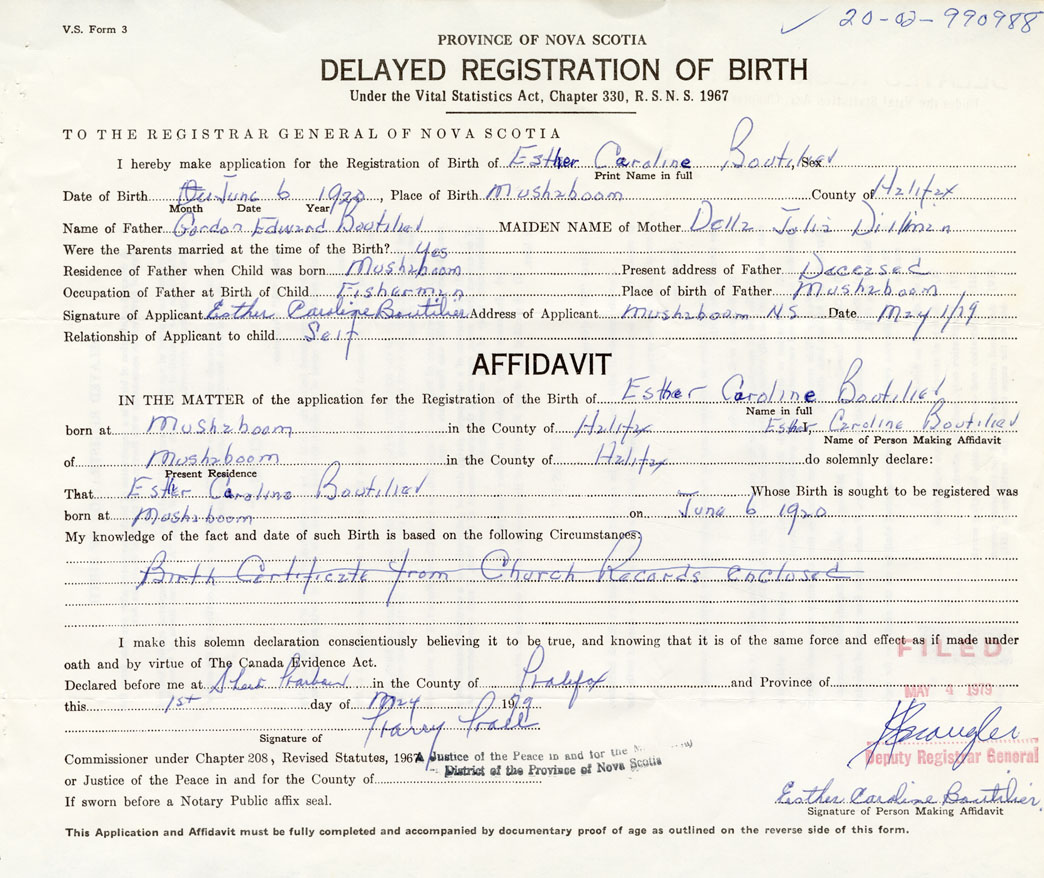 V.S. Form 3
20-02-990988
PROVINCE OF NOVA SCOTIA
DELAYED REGISTRATION OF BIRTH
Under the Vital Statistics Act, Chapter 330, R.S.N.S. 1967
TO THE REGISTRAR GENERAL OF NOVA SCOTIA
I hereby make application for the Registration of Birth of Esther Caroline Boutilier Sex
Print Name in full
Date of Birth June 6 1920, Place of Birth Mushaboom County of Halifax
Month Date Year
Name of Father Gordon Edward Boutilier MAIDEN NAME of Mother Della Julia Dillman
Were the Parents married at the time of the Birth? Yes
Residence of Father when Child was born Mushaboom Present address of Father Deceased
Occupation of Father at Birth of Child Fisherman Place of birth of Father Mushaboom
Signature of Applicant Esther Caroline Boutilier Address of Applicant Mushaboom N.S Date May 1/79
Relationship of Applicant to child Self
AFFIDAVIT
IN THE MATTER of the application for the Registration of the Birth of Esther Caroline Boutilier
Name in full
born at Mushaboom in the County of Halifax I, Esther Caroline Boutilier
Name of Person Making Affidavit
of Mushaboom in the County of Halifax do solemnly declare:
Present Residence
That Esther Caroline Boutilier Whose Birth is sought to be registered was
born at Mushaboom on June 6 1920
My knowledge of the fact and date of such Birth is based on the following Circumstances:
Birth Certificate from Church Records enclosed
I make this solemn declaration conscientiously believing it to be true, and knowing that it is of the same force and effect as if made under
oath and by virtue of The Canada Evidence Act.
FILED
Declared before me at Sheet Harbour in the County of Halifax and Province of
MAY 4 1979
this 1st day of May 1979
Harry
Signature of
Commissioner under Chapter 208, Revised Statutes, 1967
A Justice of the Peace in and for the
District of the Province of Nova Scotia
Deputy Registrar General
or Justice of the Peace in and for the County of
Esther Caroline Boutilier
If sworn before a Notary Public affix seal.
Signature of Person Making Affidavit
This Application and Affidavit must be fully completed and accompanied by documentary proof of age as outlined on the reverse side of this form.